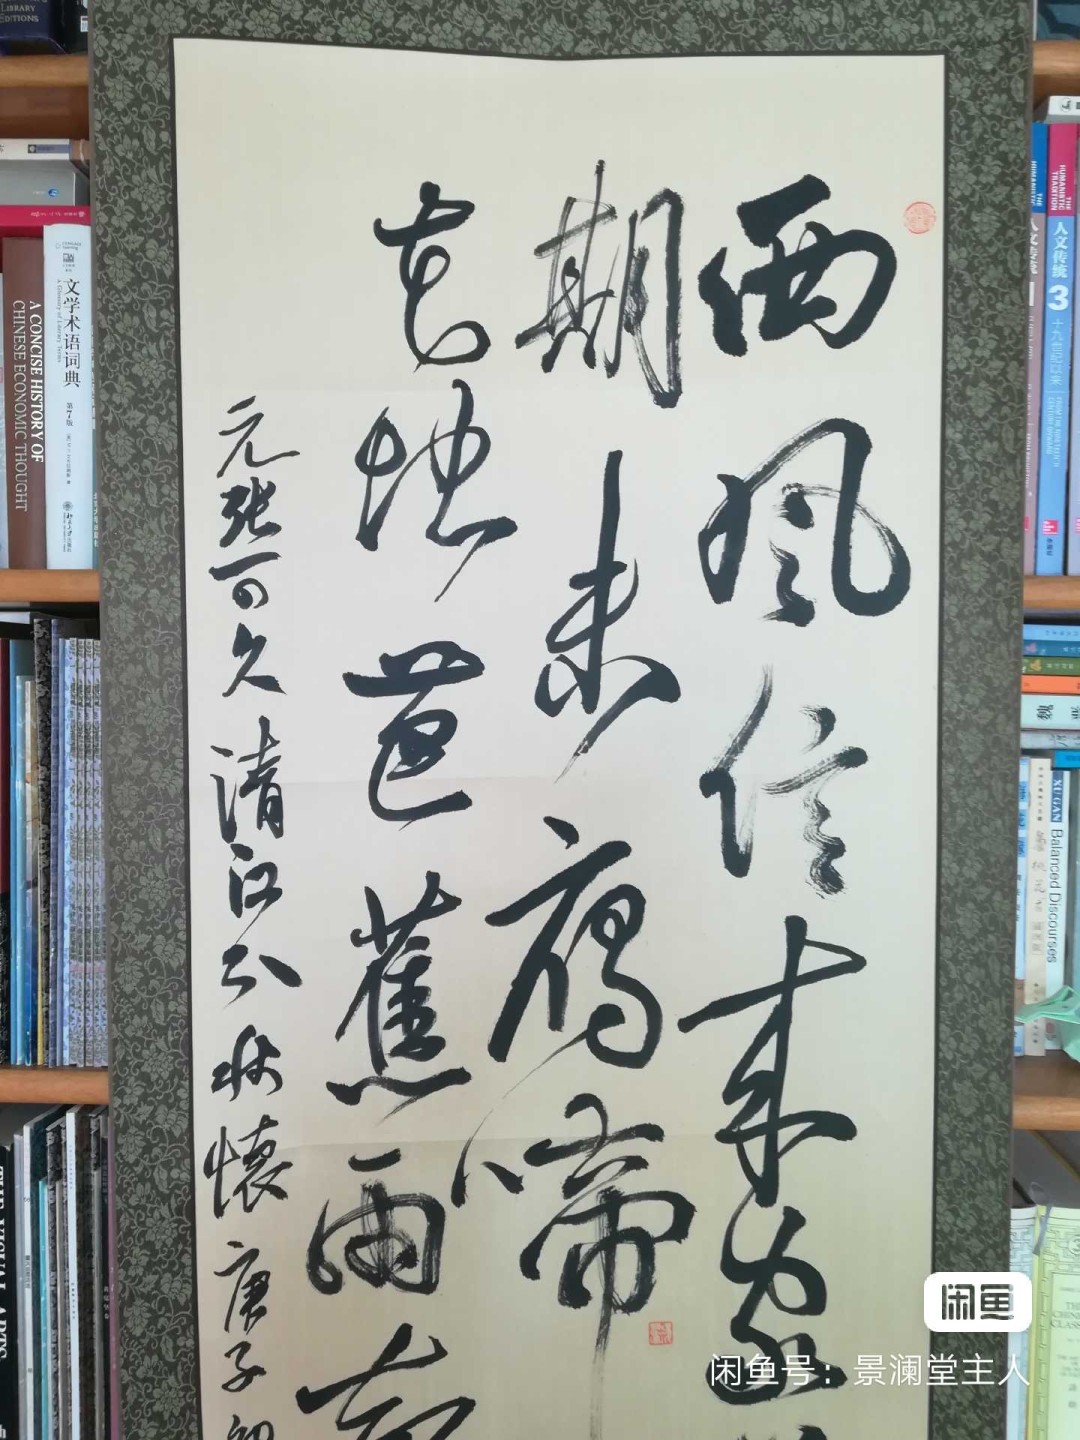 西风信来家
期未雁啼
花地芭蕉雨声
元张可久清江引秋怀庚子初
LIBRARY
EDITIONS
A CONCISE HISTORY OF
CHINESE ECONOMIC THOUGHT
文学术语词典
第7版
A Glossary of Literary Terms
THE VISUAL ARTS
THE HUMANISTIC TRADITION
人文传统
3
十九世纪以来
魏
XU GAN
Balanced Discourses
闲鱼
闲鱼号：景澜堂主人